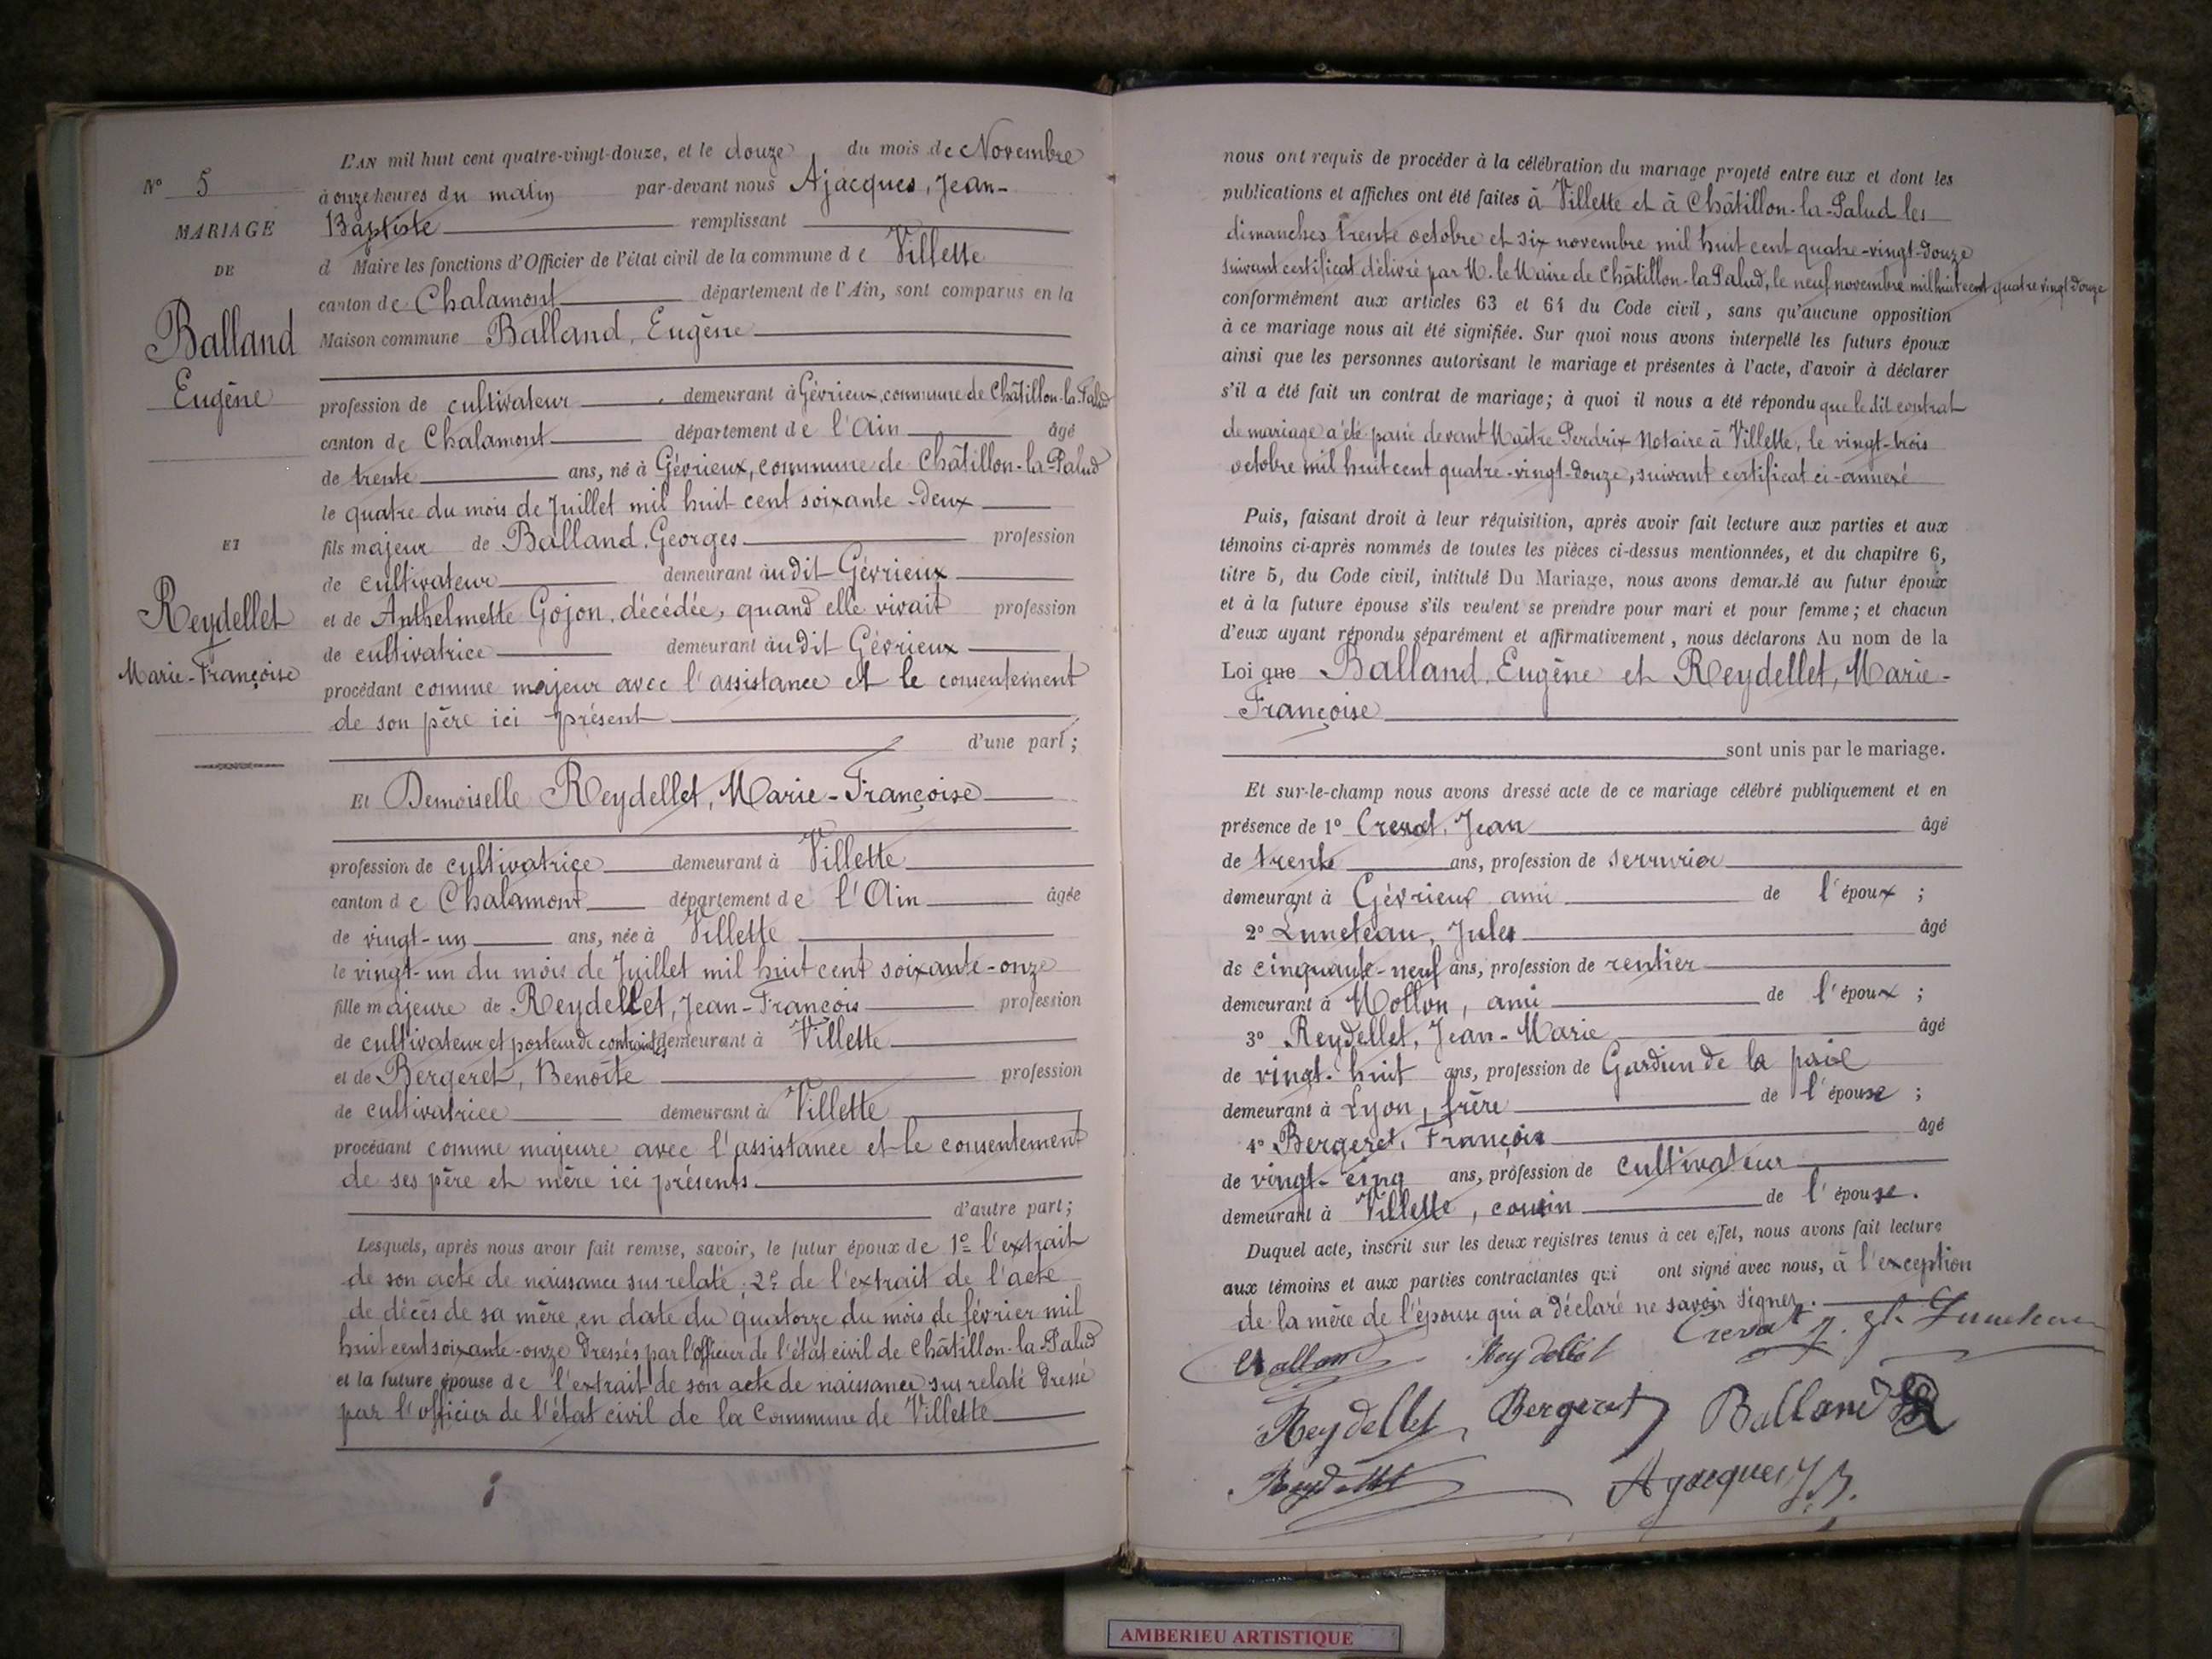 N° 5
MARIAGE
DE
Balland
Eugène
ET
Reydellet
Marie-Françoise
L'AN mil huit cent quatre-vingt-douze, et le douze du mois de Novembre
à onze heures du matin par-devant nous Ajacques, Jean-
Baptiste remplissant
d Maire les fonctions d'Officier de l'état civil de la commune de Villette
canton de Chalamont département de l'Ain, sont comparus en la
Maison commune Balland, Eugène
profession de cultivateur, demeurant à Gévrieux, commune de Châtillon-la-Palud
canton de Chalamont département de l'Ain âgé
de trente ans, né à Gévrieux, commune de Châtillon-la-Palud
le quatre du mois de Juillet mil huit cent soixante-deux
fils majeur de Balland, Georges profession
de cultivateur demeurant audit Gévrieux
et de Anthelmette Gojon, décédée, quand elle vivait profession
de cultivatrice demeurant audit Gévrieux
procédant comme majeur avec l'assistance et le consentement
de son père ici présent
d'une part;
Et Demoiselle Reydellet, Marie-Françoise
profession de cultivatrice demeurant à Villette
canton de Chalamont département de l'Ain âgée
de vingt-un ans, née à Villette
le vingt-un du mois de Juillet mil huit cent soixante-onze
fille majeure de Reydellet, Jean-François profession
de cultivateur et porteur de contraintes demeurant à Villette
et de Bergeret, Benoîte profession
de cultivatrice demeurant à Villette
procédant comme majeure avec l'assistance et le consentement
de ses père et mère ici présents
d'autre part;
Lesquels, après nous avoir fait remise, savoir, le futur époux de 1° l'extrait
de son acte de naissance susrelaté; 2° de l'extrait de l'acte
de décès de sa mère, en date du quatorze du mois de février mil
huit cent soixante-onze dressés par l'officier de l'état civil de Châtillon-la-Palud
et la future épouse de l'extrait de son acte de naissance susrelaté dressé
par l'officier de l'état civil de la Commune de Villette
nous ont requis de procéder à la célébration du mariage projeté entre eux et dont les
publications et affiches ont été faites à Villette et à Châtillon-la-Palud les
dimanches trente octobre et six novembre mil huit cent quatre-vingt-douze
suivant certificat délivré par M. le Maire de Châtillon-la-Palud, le neuf novembre mil huit cent quatre vingt douze
conformément aux articles 63 et 64 du Code civil, sans qu'aucune opposition
à ce mariage nous ait été signifiée. Sur quoi nous avons interpellé les futurs époux
ainsi que les personnes autorisant le mariage et présentes à l'acte, d'avoir à déclarer
s'il a été fait un contrat de mariage; à quoi il nous a été répondu que le dit contrat
de mariage a été passé devant Maître Perdrix Notaire à Villette, le vingt-trois
octobre mil huit cent quatre-vingt-douze, suivant certificat ci-annexé
Puis, faisant droit à leur réquisition, après avoir fait lecture aux parties et aux
témoins ci-après nommés de toutes les pièces ci-dessus mentionnées, et du chapitre 6,
titre 5, du Code civil, intitulé Du Mariage, nous avons demandé au futur époux
et à la future épouse s'ils veulent se prendre pour mari et pour femme; et chacun
d'eux ayant répondu séparément et affirmativement, nous déclarons Au nom de la
Loi que Balland, Eugène et Reydellet, Marie-
Françoise
sont unis par le mariage.
Et sur-le-champ nous avons dressé acte de ce mariage célébré publiquement et en
présence de 1° Crevat, Jean âgé
de trente ans, profession de serrurier
demeurant à Gévrieux ami de l'époux;
2° Luneteau, Jules âgé
de cinquante-neuf ans, profession de rentier
demeurant à Mollon, ami de l'époux;
3° Reydellet, Jean-Marie âgé
de vingt-huit ans, profession de Gardien de la paix
demeurant à Lyon, frère de l'épouse;
4° Bergeret, François âgé
de vingt-cinq ans, profession de cultivateur
demeurant à Villette, cousin de l'épouse.
Duquel acte, inscrit sur les deux registres tenus à cet effet, nous avons fait lecture
aux témoins et aux parties contractantes qui ont signé avec nous, à l'exception
de la mère de l'épouse qui a déclaré ne savoir signer.
Balland Reydellet Crevat J.
Reydellet Bergeret Balland
Reydellet Ajacques J. B.
AMBERIEU ARTISTIQUE